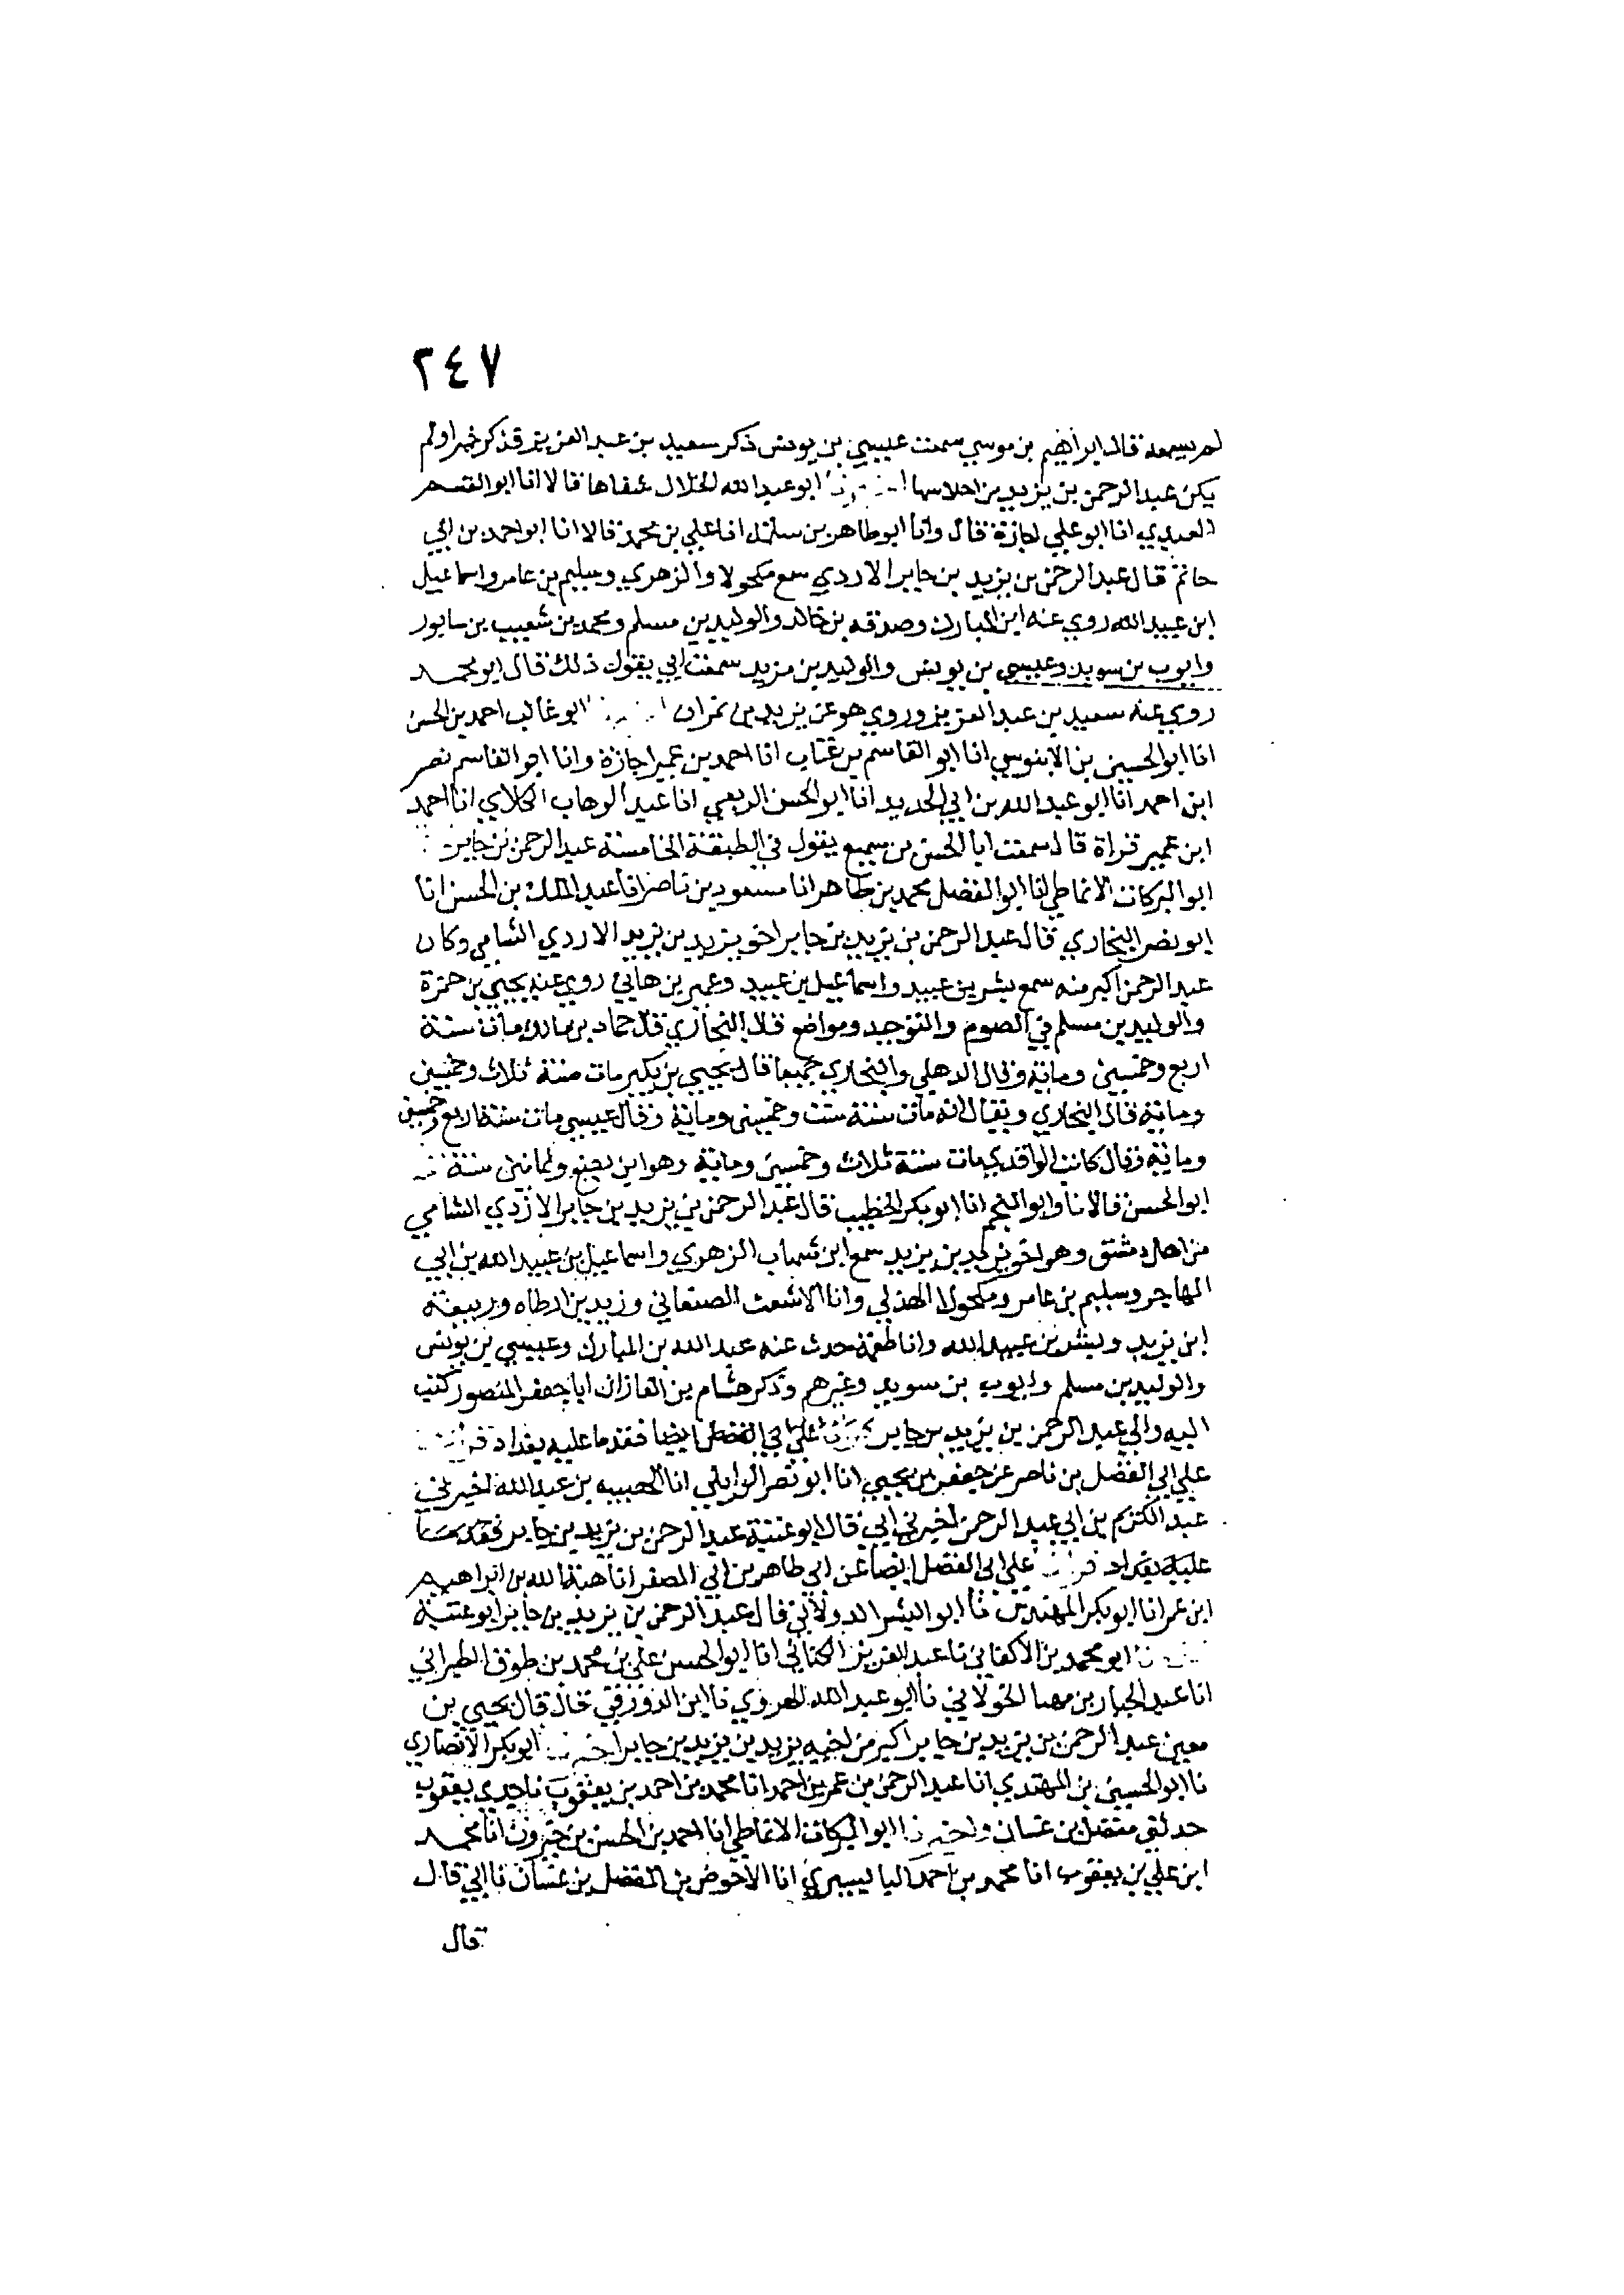 ٢٤٧
لم يسمعه قال ابراهيم بن موسي سمعت عيسي بن يونس ذكر سعيد بن عبد العزيز فذكر خيرا ولم
يكن عبد الرحمن بن يزيد من احلاسها ابو عبد الله الخلال شفاها قالا انا ابو القسم
العبدي انا ابو علي اجازة قال وانا ابو طاهر بن سلمة انا علي بن محمد قالا انا ابو احمد بن ابي
حاتم قال عبد الرحمن بن يزيد بن جابر الازدي سمع مكحولا والزهري وسليم بن عامر واسماعيل
ابن عبيد الله روي عنه ابن المبارك وصدقه بن خالد والوليد بن مسلم ومحمد بن شعيب بن سابور
وايوب بن سويد وعيسي بن يونس والوليد بن مزيد سمعت ابي يقول ذلك قال ابو محمد
روي عنه سعيد بن عبد العزيز وروي هو عن يزيد بن نمران ابو غالب احمد بن الحسن
انا ابو الحسين بن الابنوسي انا ابو القاسم بن عتاب انا احمد بن عمير اجازة وانا ابو القاسم نصر
ابن احمد انا ابو عبد الله بن ابي الحديد انا ابو الحسن الربعي انا عبد الوهاب الكلابي انا احمد
ابن عمير قراة قال سمعت ابا الحسن بن سميع يقول في الطبقة الخامسة عبد الرحمن بن جابر
ابو البركات الانماطي انا ابو الفضل محمد بن طاهر انا مسعود بن ناصر انا عبد الملك بن الحسن انا
ابو نصر البخاري قال عبد الرحمن بن يزيد بن جابر اخو يزيد بن يزيد الازدي الشامي وكان
عبد الرحمن اكبر منه سمع بشر بن عبيد واسماعيل بن عبيد وعمير بن هاني روي عنه يحيي بن حمزة
والوليد بن مسلم في الصوم والتوحيد ومواضع قال البخاري قال حماد بن مالك مات سنة
اربع وخمسين ومائة وقال الدهلي والبخاري جميعا قال يحيي بن بكير مات سنة ثلاث وخمسين
ومائة قال البخاري ويقال انه مات سنة ست وخمسين ومائة وقال عيسي مات سنة اربع وخمسين
ومائة وقال كاتب الواقدي مات سنة ثلاث وخمسين ومائة وهو ابن بضع وثمانين سنة
ابو الحسن قالا نا وابو النجم انا ابو بكر الخطيب قال عبد الرحمن بن يزيد بن جابر الازدي الشامي
من اهل دمشق وهو اخو يزيد بن يزيد سمع ابن شهاب الزهري واسماعيل بن عبيد الله بن ابي
المهاجر وسليم بن عامر ومكحولا الهذلي وانا الاشعث الصنعاني وزيد بن ارطاه وربيعة
ابن يزيد وبشر بن عبيد الله وانا طعمة حدث عنه عبد الله بن المبارك وعيسي بن يونس
والوليد بن مسلم وايوب بن سويد وغيرهم وذكر هشام بن الغاز ان ابا جعفر المنصور كتب
اليه والي عبد الرحمن بن يزيد بن جابر علي ابي الفضل ايضا فقدما عليه بغداد
علي ابي الفضل بن ناصر عن جعفر بن يحيي انا ابو نصر الوايلي انا الخصيب بن عبد الله اخبرني
عبد الكريم بن ابي عبد الرحمن اخبرني ابي قال ابو عتبة عبد الرحمن بن يزيد بن جابر فقدما
عليه بغداد علي ابي الفضل ايضا عن ابي طاهر بن ابي الصقر انا هبة الله بن ابراهيم
ابن عمر انا ابو بكر المهندس نا ابو البشر الدولابي قال عبد الرحمن بن يزيد بن جابر ابو عتبة
ابو محمد بن الاكفاني نا عبد العزيز الكتاني انا ابو الحسن علي بن محمد بن طوق الطبراني
انا عبد الجبار بن مهنا الخولاني نا ابو عبد الله الهروي نا ابن الدورقي قال قال يحيي بن
معين عبد الرحمن بن يزيد بن جابر اكبر من اخيه يزيد بن يزيد بن جابر ابو بكر الانصاري
نا ابو الحسين بن المهتدي انا عبد الرحمن بن عمر بن احمد انا محمد بن احمد بن يعقوب نا جدي يعقوب
حدثني مفضل بن غسان واخبرنا ابو البركات الانماطي انا احمد بن الحسن بن خيرون انا محمد
ابن علي بن يعقوب انا محمد بن احمد البابسيري انا الاحوص بن المفضل بن غسان نا ابي قال
قال